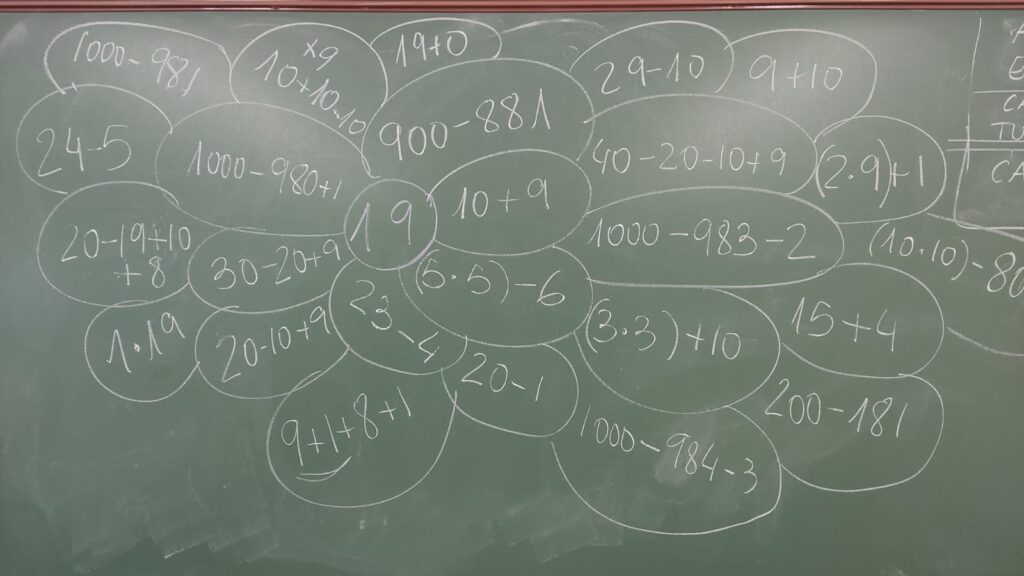 1000-981
+9
10+10-10
19+0
29-10
9+10
24-5
1000-980+1
900-881
40-20-10+9
(2·9)+1
20-19+10
+8
30-20+9
19
10+9
1000-983-2
(10·10)-80
1·19
20-10+9
23
-4
(5·5)-6
(3·3)+10
15+4
9+1+8+1
20-1
1000-984-3
200-181
CA
TU
CA